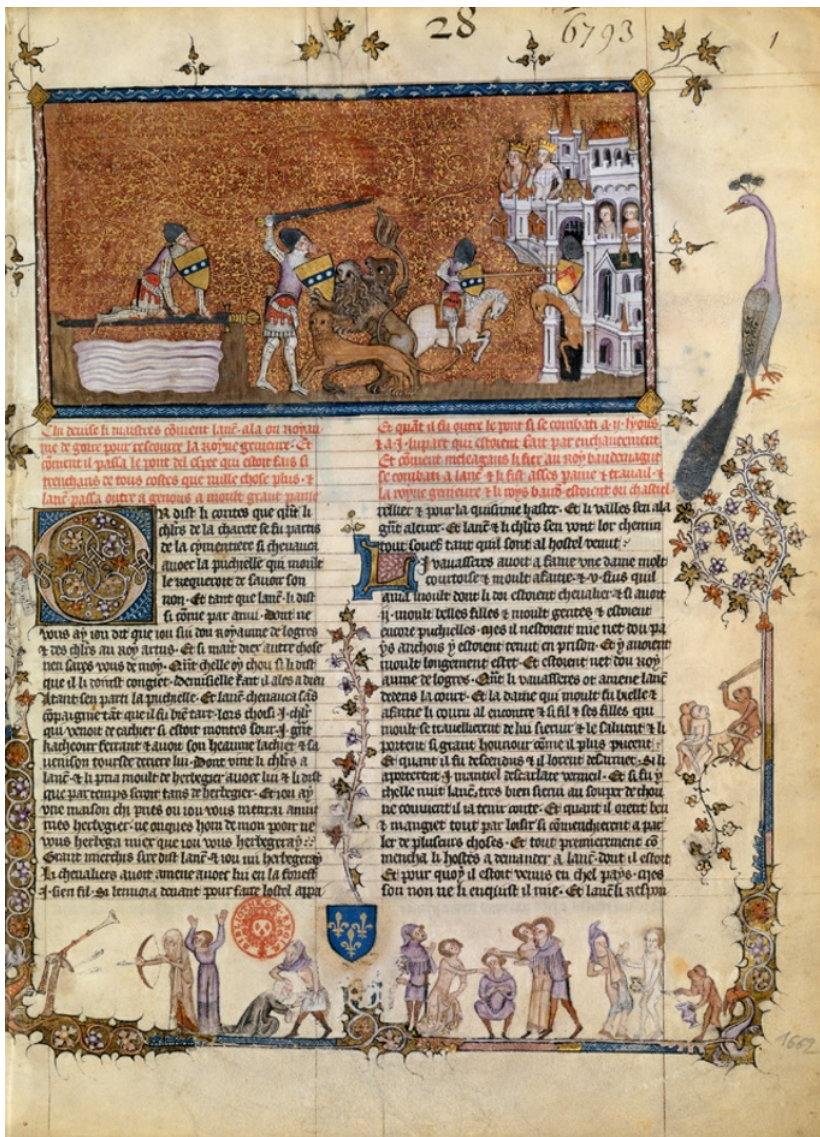 28
6793
1
Chi deuise li maistres cōment lanc̄ ala ou royau
me de goire pour rescourre la royne genieure · Et
cōment il passa le pont del espee qui estoit fais si
trenchans de tous costes que nulle chose plus · &
lanc̄ passa outre a genous a moult grant paine
Or dist li contes que qñt li
chlrs de la charete se fu partis
de la cymentiere si cheuauca
auoec la puchielle qui moult
le requeroit de sauoir son
non · Et tant que lanc̄ li dist
si cōme par anui · Dont ne
vous ay iou dit que iou sui dou royaume de logres
& des chlrs au roy artus · Et si mais dier autre chose
nen sares vous de moy · Qñt chelle oy chou si li dist
que il li donist congiet · Demisielle fait il ales a dieu
Atant sen parti la puchielle · Et lanc̄ cheuauca sās
cōpaignie tāt que il fu biē tart · lors choisi · j · chlr
qui venoit de cachier si estoit montes sour · j · grāt
hacheour ferrant & auoit son heaume lachier & sa
venison toursee deriere lui · Dont vint li chlrs a
lanc̄ · & li pria moult de herbegier auoec lui & li dist
que par temps seroit tans de herbegier · Et iou ay
vne maison chi pries ou iou vous menrai anuit
mes herbegier · ne onques hom de mon pooir ne
vous herbega miex que iou vous herbegeray ·
Grant merchis sire dist lanc̄ & iou mi herbegeray
li cheualiers auoit amene auoec lui en la foriest
· j · sien fil · Si lenuoia deuant pour faire lostel appa
Et quāt il fu outre le pont si se combati a · ij · lyons
& a · j · lupart qui estoient fait par enchantement
Et cōment meleagans li fiex au roy baudemagus
se combati a lanc̄ & li fist asses paine & trauail · &
la royne genieure & li roys baud̄ estoient ou chastiel
reillier & pour la quisime haster · Et li valles sen ala
grāt aleure · Et lanc̄ & li chlrs sen vont lor chemin
tout souef tant quil sont al hostel venut ·
Li vauasseres auoit a fame vne dame molt
courtoise & moult afaitie · & · v · fius quil
ama moult dont li doi estoient cheualier & si auoit
· ij · moult belles filles & moult gentes & estoient
encore puchielles · mes il nestoient mie net dou pa
ys anchois y estoient tenut en prison · Et y auoient
moult longement estet · Et estoient net dou roy
aume de logres · Qñt li vauasseres ot amene lanc̄
dedens la court · Et la dame qui moult fu bielle &
afaitie li couru al encontre & si fil & ses filles qui
moult se trauellierent de lui seruir & le saluent & li
portent si grant hounour cōme il plus pueent ·
Et quant il fu descendus & il lorent desarmet · Si li
aporterent · j · mantiel descarlate vermeil · Et si fu y
chelle nuit lanc̄ tres bien seruis au souper de chou
ne couuient il ia tenir conte · Et quant il orent beu
& mangiet tout par loisir si cōmenchierent a par
ler de plusieurs choses · Et tout premierement cō
mencha li hostes a demander a lanc̄ dont il estoit
Et pour quoy il estoit venus en chel pays · mes
son non ne li enquist il mie · Et lanc̄ li respon
1662